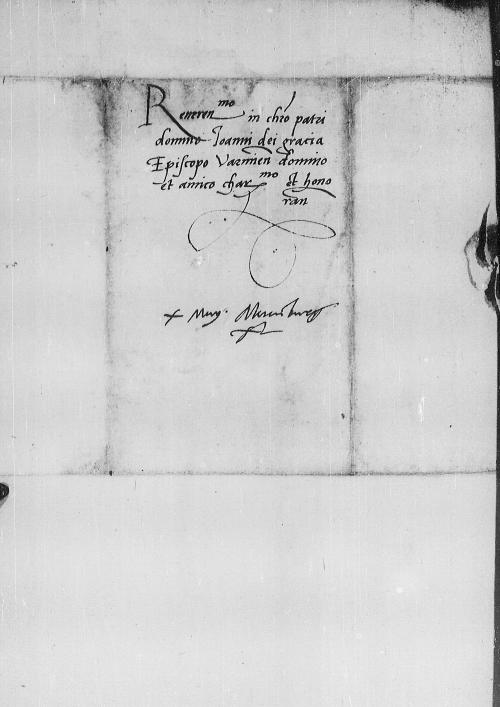 Reueren^mo in chro patri
domino Ioanni dei gracia
Episcopo Varmien domino
et amico char^mo et hono
ran